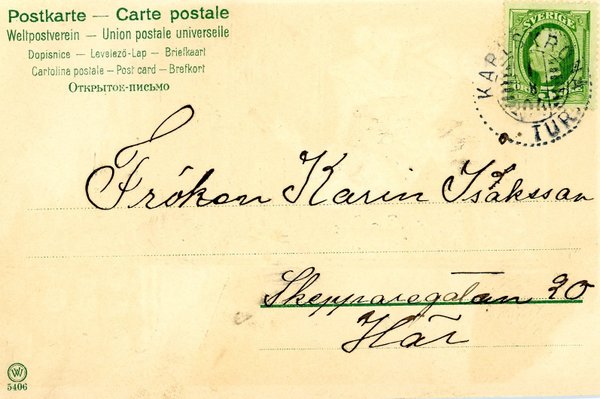 Postkarte — Carte postale
Weltpostverein — Union postale universelle
Dopisnice - Levelező-Lap - Briefkaart
Cartolina postale - Post card - Brefkort
Открыток-письмо
SVERIGE
KARLSKRONA
TUR
Fröken Karin Isakssan
Skepparegatan 20
Här
W
5406